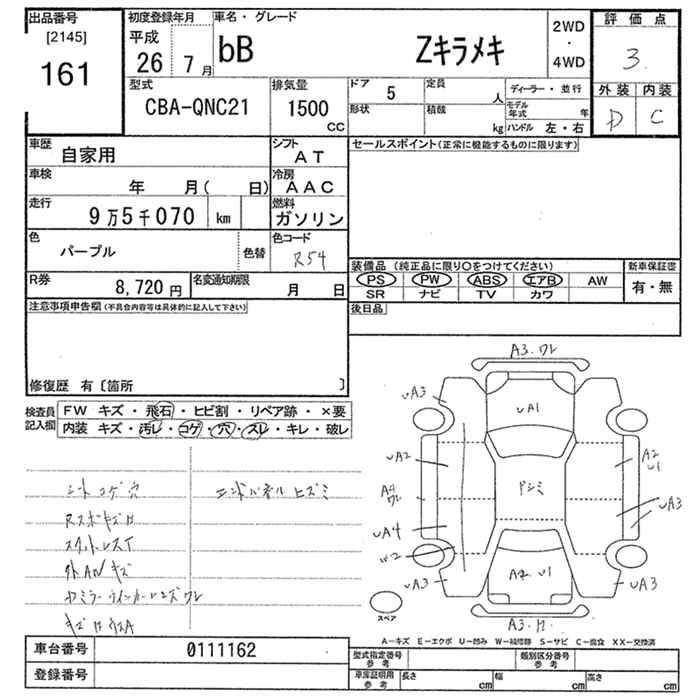 出品番号
[2145]
161
初度登録年月
平成
26 7月
車名・グレード
bB Zキラメキ
2WD
・
4WD
評価点
3.
外装 内装
D C
型式
CBA-QNC21
排気量
1500
CC
ドア 5
定員 人
形状
積載 kg
ディーラー・並行
モデル年式 年
ハンドル 左・右
車歴
自家用
シフト
AT
車検 年 月( 日)
冷房
AAC
走行 9万5千070 km
燃料
ガソリン
色
パープル
色替
色コード
R54
セールスポイント(正常に機能するものに限ります)
R券
8,720円
名変通知期限
月 日
装備品 (純正品に限り○をつけてください)
PS PW ABS エアB AW
SR ナビ TV カワ
新車保証書
有・無
注意事項申告欄(不具合内容等は具体的に記入して下さい)
後日品
修復歴 有〔箇所 〕
検査員
記入欄
FW キズ・飛石・ヒビ割・リペア跡・×要
内装 キズ・汚レ・コゲ・穴・スレ・キレ・破レ
シートコゲ穴
エンドパネルヒズミ
外AWキズ
A3.ワレ
UA3
UA1
UA2
A2
U1
A4
ワレ
UA3
UA4
W2
UA3
A4 U1
UA3
スペア
A-キズ E-エクボ U-凹み W-補修跡 S-サビ C-腐食 XX-交換済
車台番号 0111162
登録番号
型式指定番号
参考
類別区分番号
参考
車庫証明用
参考
長さ cm
幅 cm
高さ cm